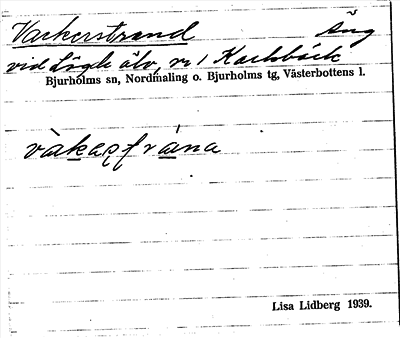 Varkerstrand Äng
vid Lögde älv, nr 1 Karlsbäck
Bjurholms sn, Nordmaling o. Bjurholms tg, Västerbottens l.
Lisa Lidberg 1939.